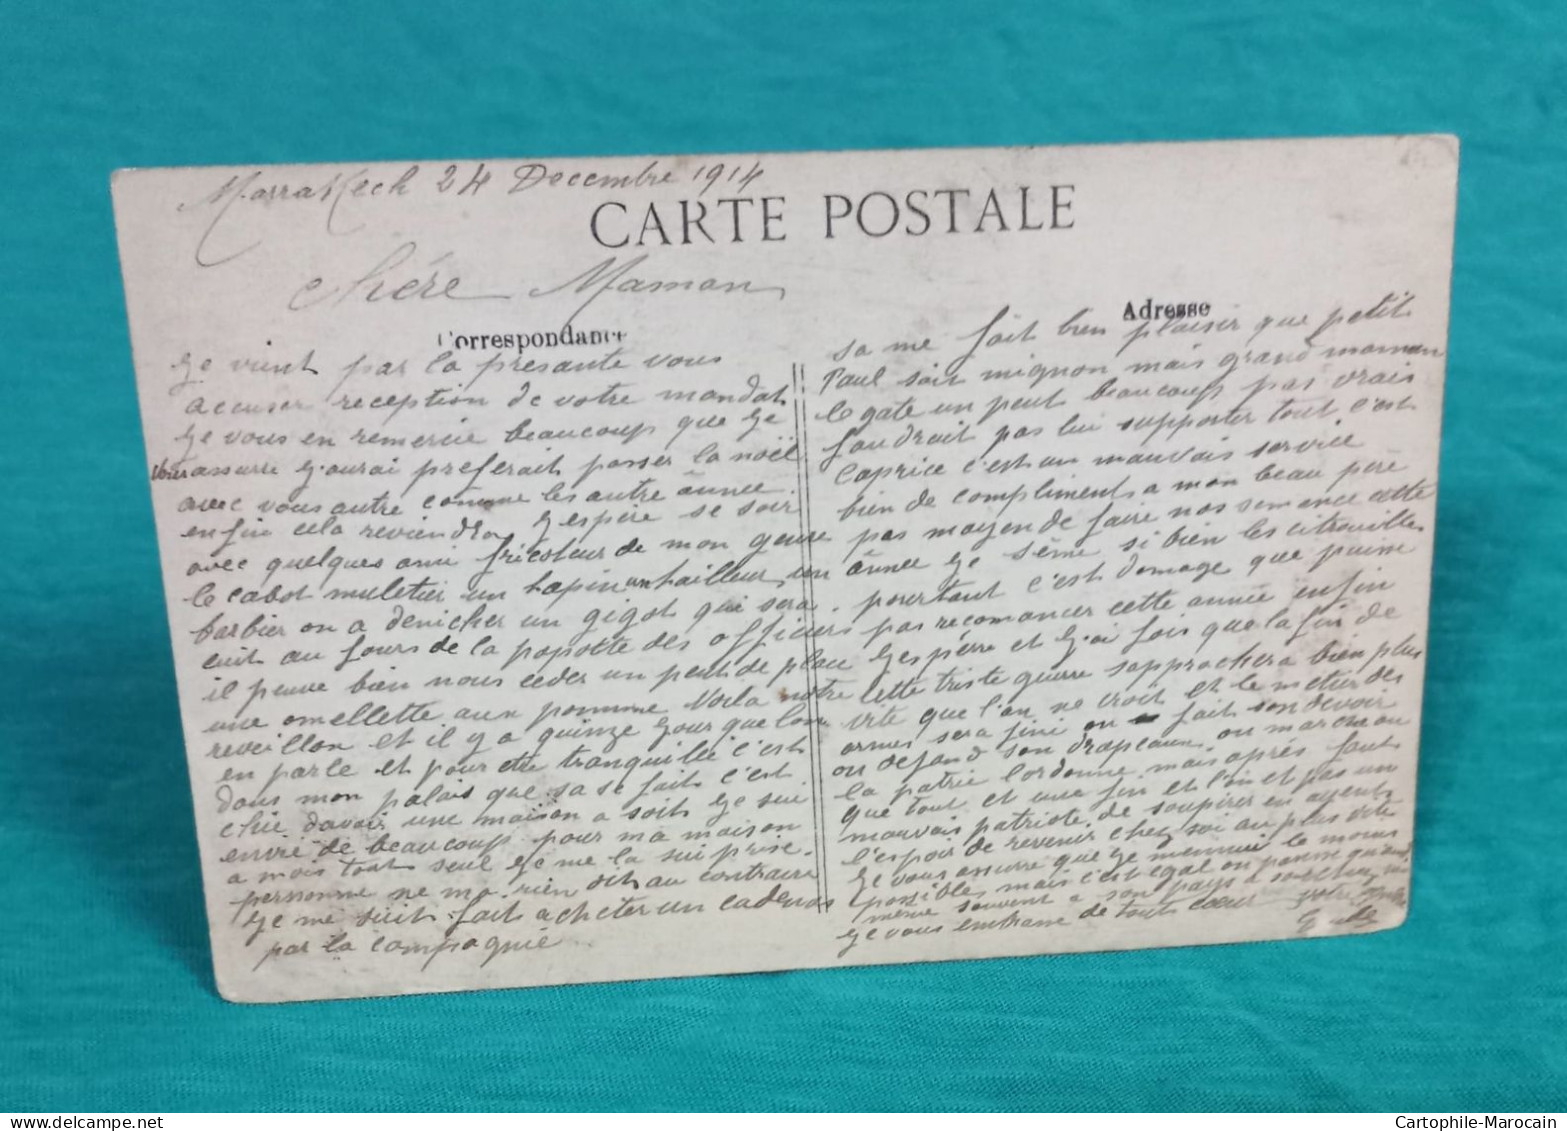 Marrakech 24 Decembre 1914
CARTE POSTALE
chére Maman
Correspondance
Adresse
Ge vient par la presante vous
accuser reception de votre mandat
Ge vous en remercie beaucoup que Ge
vous assurre G'aurai preferait passer la noël
avec vous autre comme les autre année.
enfin cela reviendra Gespire se soir
avec quelques ami fricoteur de mon genre
le cabot muletier un lapin un tailleur un
barbier on a denicher un gigot qui sera
cuit au fours de la popotte des officiers
il peuve bien nous ceder un peut de place
une omellette aux pomme Voila notre
reveillon et il y a quinze Gour que l'on
en parle et pour etre tranquille c'est
dans mon palais que sa se fait c'est
chic davoir une maison a soit Ge sui
envié de beaucoup pour ma maison
a mois tout seul Ge me la sui prise
personne ne ma rien dit au contraire
Ge me suit fait acheter un cadenas
par la compagnie
sa me fait bien plaisir que petit
Paul soit mignon mais grand maman
le gate un peut beaucoup pas vrais
faudrait pas lui supporter tout c'est
caprice c'est un mauvais service
bien de compliments a mon beau pére
pas moyen de faire nos semance cette
année Ge séme si bien les citrouilles
pourtant c'est domage que puisse
pas recomancer cette année enfin
Gespérre et G'ai fois que la fin de
cette triste guerre sapprochera bien plus
vite que l'on ne croit et le metier des
armes sera fini on fait son devoir
on defend son drapeaux ou marche ou
la patrie l'ordonne mais aprés faut
que tout et une fin et l'on et pas un
mauvais patriote de soupirer en ayent
l'espoir de revenir chez soi au plus vite
Ge vous assurre que Ge mennui le moins
possible mais c'est egal on panse quand
même souvent a son pays a sa
Ge vous embrasse de tout cœur votre
Cartophile-Marocain